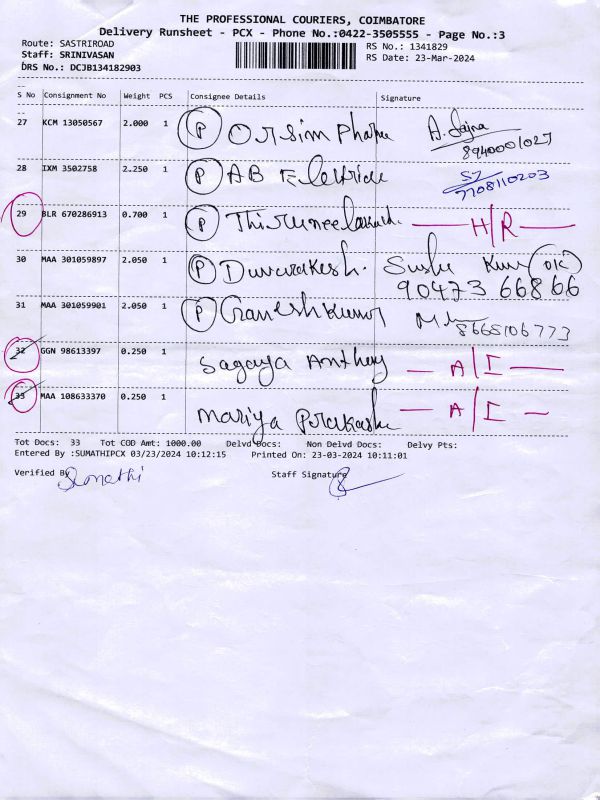 THE PROFESSIONAL COURIERS, COIMBATORE
Delivery Runsheet - PCX - Phone No.:0422-3505555 - Page No.:3
Route: SASTRIROAD RS No.: 1341829
Staff: SRINIVASAN RS Date: 23-Mar-2024
DRS No.: DCJB134182903
S No Consignment No Weight PCS Consignee Details Signature
27 KCM 13050567 2.000 1 P Orsim Pharma A. Sajna
8940001027
28 IXM 3502758 2.250 1 P AB Electrice
7708110203
29 BLR 670286913 0.700 1 P H/R
30 MAA 301059897 2.050 1 P Duvarakesh. (OK)
90473 66866
31 MAA 301059901 2.050 1 P Ganeshkumar
8668106773
32 GGN 98613397 0.250 1 Sagaya Anthony A/I
33 MAA 108633370 0.250 1 Mariya Prakash A/I
Tot Docs: 33 Tot COD Amt: 1000.00 Delvd Docs: Non Delvd Docs: Delvy Pts:
Entered By :SUMATHIPCX 03/23/2024 10:12:15 Printed On: 23-03-2024 10:11:01
Verified By Sumathi Staff Signature